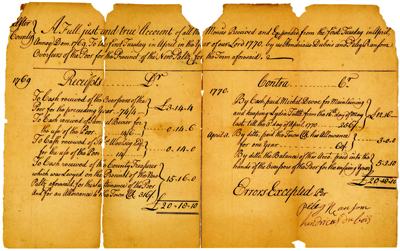 Ulster County
A Full, just and true Account of all the Monies Received and Expended from the First Tuesday in April
Annoq Dom. 1769. To the first Tuesday in April in the Year of our Lord 1770. by us Hendricus Dubois and Peleg Ransom
Overseers of the Poor for the Precinct of the New Paltz, for the Town aforesaid
Receipts Dr.
1769
To Cash received of the Overseers of the
Poor for the preceeding Year
£3-14-4
To Cash received of
for the use of the Poor 14/6
0.14.6
To Cash received of
for the use of the Poor 14/
0.14.0
To Cash received of the County Treasurer
which was raised on the Precinct of the New
Paltz aforesaid for the maintenance of the Poor
and for an Allowance to the Town Clk
15-16-0
£20-18-10
Contra Cr.
1770
By Cash paid for Maintaining
and keeping of from the 16th day of May
last till the 3d of April 1770
April 3
By ditto paid the Town Clk his Allowance
for one year
By ditto the Balance of this Acct. paid into the
hands of the Overseers of the Poor for the ensuing Year
£20-18-10
Errors Excepted Per
Peleg Ransom
Hendricus Dubois